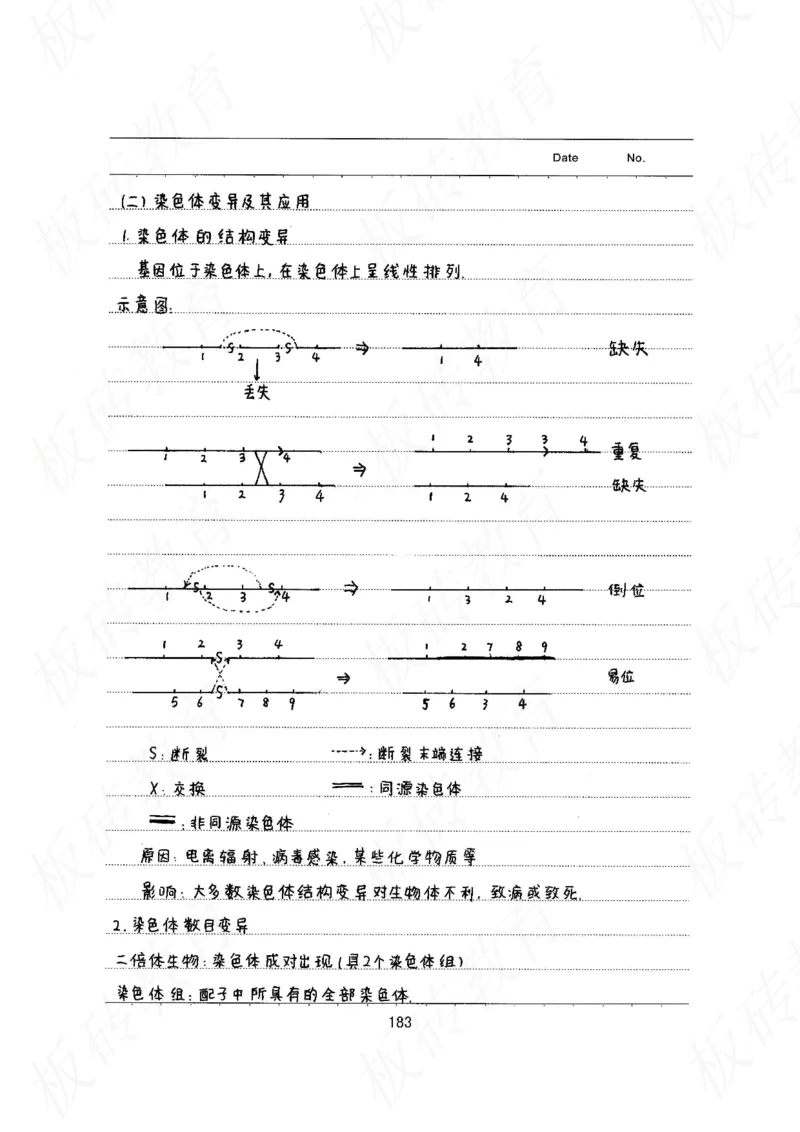 Date No.
(二)染色体变异及其应用
1.染色体的结构变异
基因位于染色体上,在染色体上呈线性排列.
示意图:
S S
1 2 3 4 ⇒ 1 4 缺失
丢失
1 2 3 3 4 重复
1 2 3 4 ⇒
1 2 3 4 1 2 4 缺失
S S
1 2 3 4 ⇒ 1 3 2 4 倒位
1 2 S 3 4 1 2 7 8 9
⇒ 易位
5 6 S 7 8 9 5 6 3 4
S:断裂 ---->:断裂末端连接
X:交换 ══:同源染色体
══:非同源染色体
原因:电离辐射、病毒感染、某些化学物质等
影响:大多数染色体结构变异对生物体不利,致病或致死.
2.染色体数目变异
二倍体生物:染色体成对出现(具2个染色体组)
染色体组:配子中所具有的全部染色体.
183
板砖教育